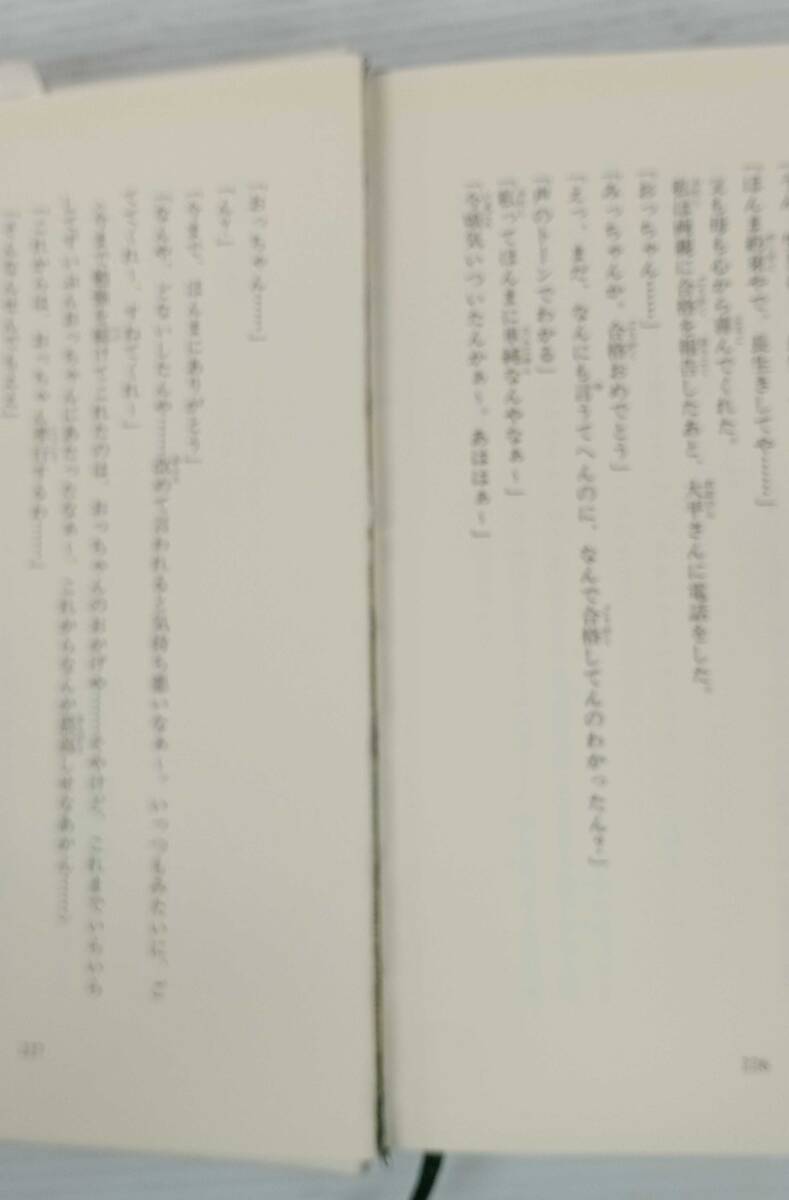 「ほんまめ見やで、長生きしてや……」
父も母も心から喜んでくれた。
私は両親に合格を報告したあと、大平さんに電話をした。
「おっちゃん……」
「みっちゃんか、合格おめでとう」
「えっ、まだ、なんにも言うてへんのに、なんで合格してんのわかったん？」
「声のトーンでわかる」
「私ってほんまに単純なんやなぁ〜」
「今頃気いついたんかぁ〜、あははぁ〜」
226
「おっちゃん……」
「ん？」
「今まで、ほんまにありがとう」
「なんや、どないしたんや……改めて言われると気持ち悪いなぁ〜、いっつもみたいに、と
てくれ〜、すねてくれ〜」
「今まで勉強を続けてこれたのは、おっちゃんのおかげや……そやけど、これまでいろいろ
してずいぶんおっちゃんにあたったなぁ〜、これからなんか恩返しせなあかん……」
「これからは、おっちゃん孝行するわ……」
「そんなんせんでもええ」
227